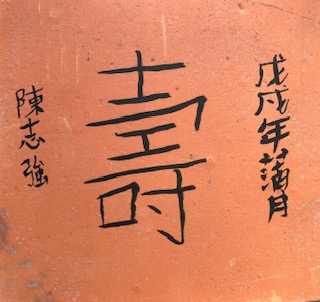 戊戌年蒲月
壽
陳志強